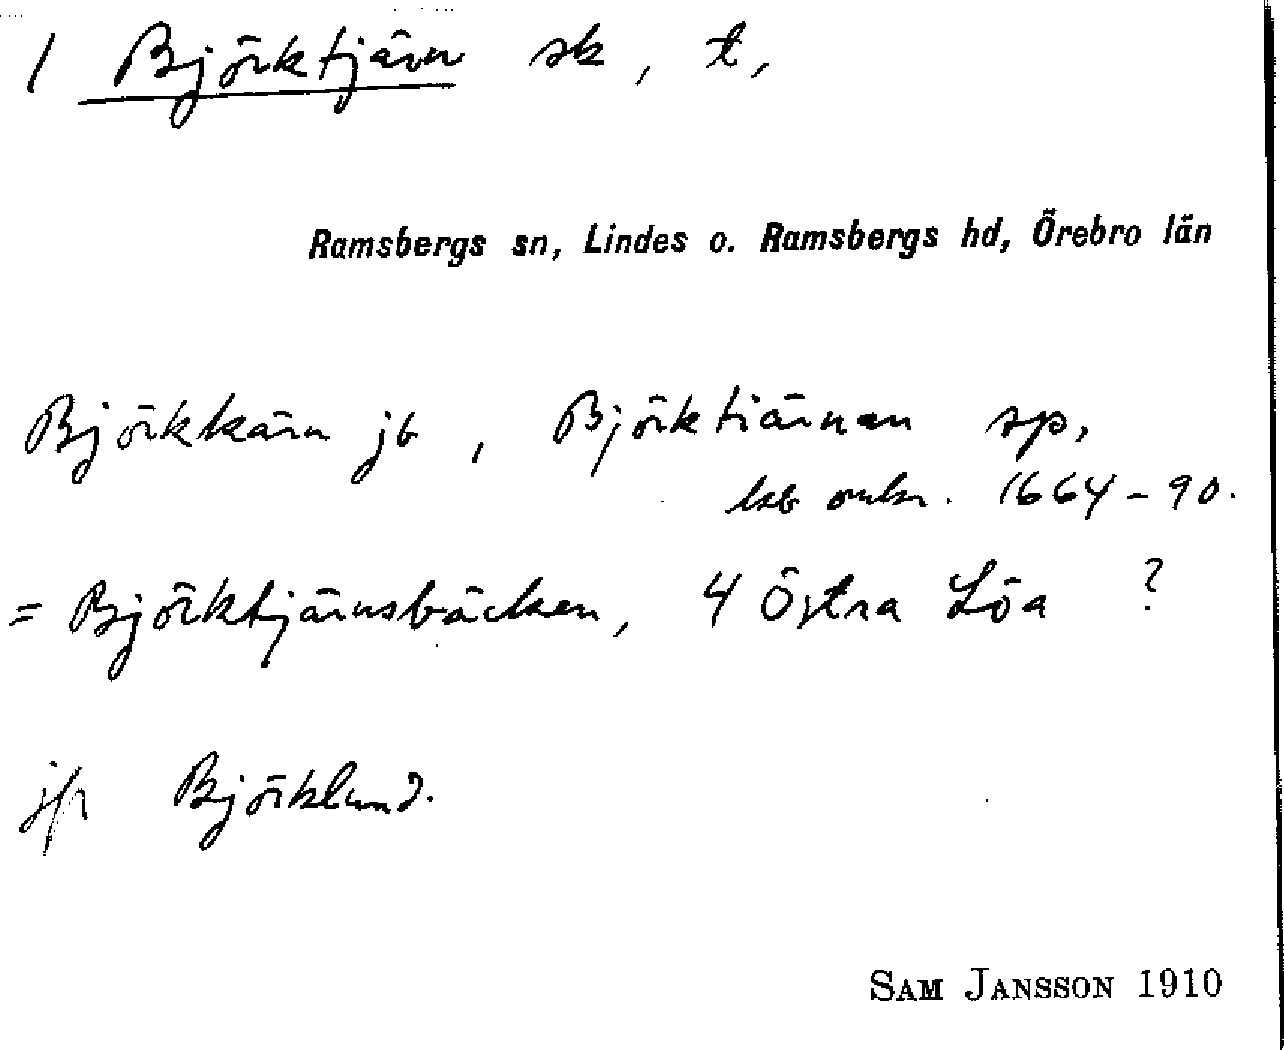 1 Björktjärn sk, t,
Ramsbergs sn, Lindes o. Ramsbergs hd, Örebro län
Björkkärn jb, Björktiärnan sp,
kb omkr. 1664-90.
= Björktjärnsbäcken, 4 Östra Löa ?
jfr Björklund.
SAM JANSSON 1910